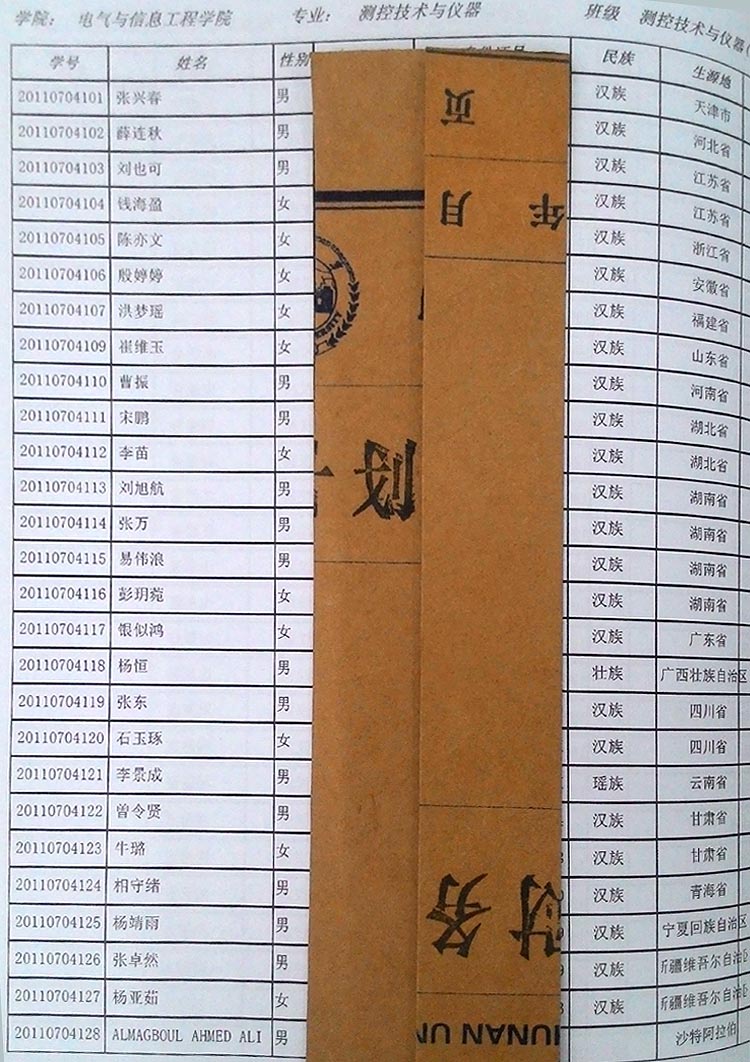 学院： 电气与信息工程学院 专业： 测控技术与仪器 班级 测控技术与仪器(
学号 姓名 性别 民族 生源地
20110704101 张兴春 男 汉族 天津市
20110704102 薛连秋 男 汉族 河北省
20110704103 刘也可 男 汉族 江苏省
20110704104 钱海盈 女 汉族 江苏省
20110704105 陈亦文 女 汉族 浙江省
20110704106 殷婷婷 女 汉族 安徽省
20110704107 洪梦瑶 女 汉族 福建省
20110704109 崔维玉 女 汉族 山东省
20110704110 曹振 男 汉族 河南省
20110704111 宋鹏 男 汉族 湖北省
20110704112 李苗 女 汉族 湖北省
20110704113 刘旭航 男 汉族 湖南省
20110704114 张万 男 汉族 湖南省
20110704115 易伟浪 男 汉族 湖南省
20110704116 彭玥菀 女 汉族 湖南省
20110704117 银似鸿 女 汉族 广东省
20110704118 杨恒 男 壮族 广西壮族自治区
20110704119 张东 男 汉族 四川省
20110704120 石玉琢 女 汉族 四川省
20110704121 李景成 男 瑶族 云南省
20110704122 曾令贤 男 汉族 甘肃省
20110704123 牛璐 女 汉族 甘肃省
20110704124 相守绪 男 汉族 青海省
20110704125 杨靖雨 男 汉族 宁夏回族自治区
20110704126 张卓然 男 汉族 新疆维吾尔自治区
20110704127 杨亚茹 女 汉族 新疆维吾尔自治区
20110704128 ALMAGBOUL AHMED ALI 男 沙特阿拉伯
页
年 月
财务
HUNAN UN